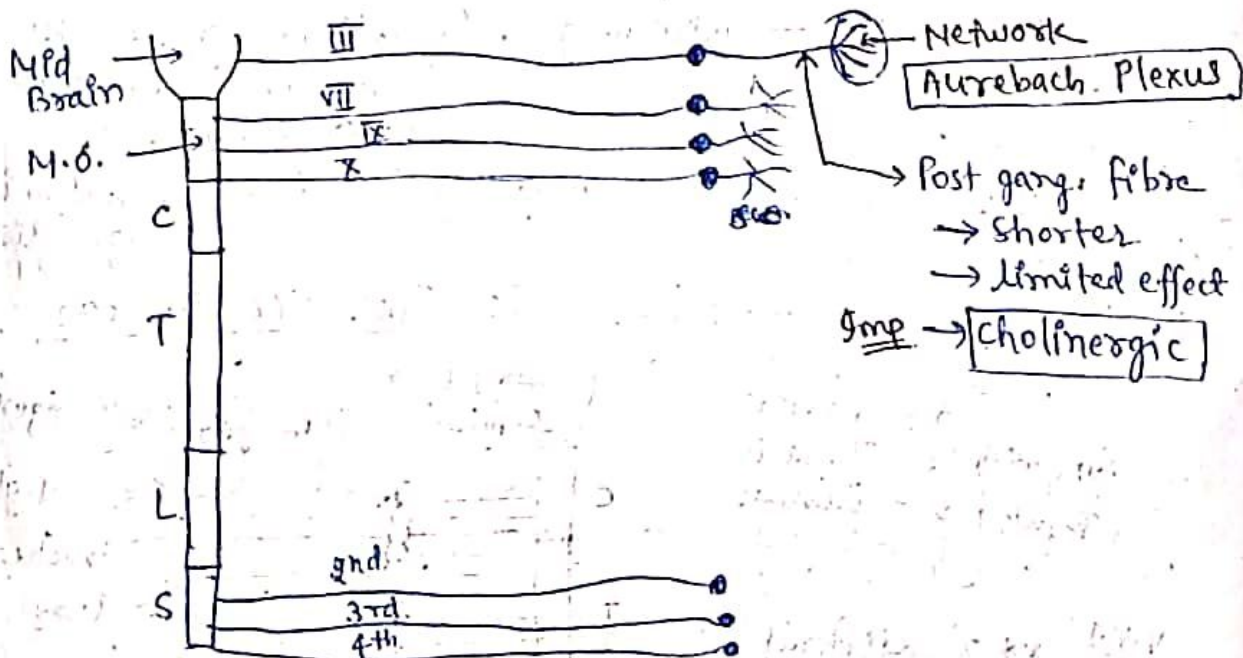 Mid
Brain
M.O.
C
T
L
S
III
VII
IX
X
Network
Aurebach. Plexus
Post gang. fibre
→ Shorter
→ limited effect
Imp → Cholinergic
2nd.
3rd.
4th.